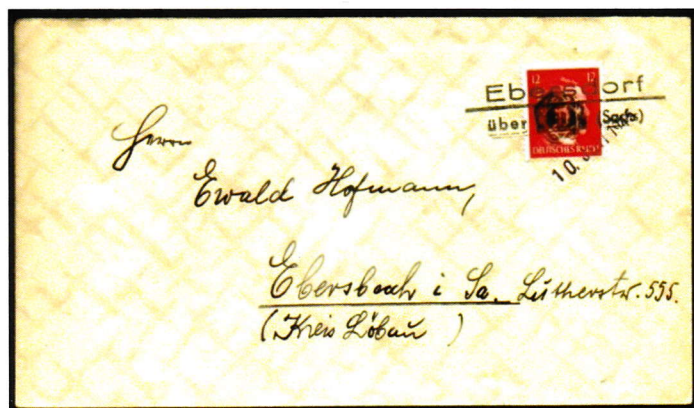 12 12
Ebersdorf
über (Sachs)
DEUTSCHES REICH
10.
Herrn
Ewald Hofmann,
Ebersbach i Sa. Lutherstr. 555.
(Kreis Löbau)